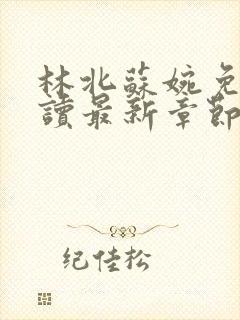 林北蘇婉免
讀最新章節
纪佳松